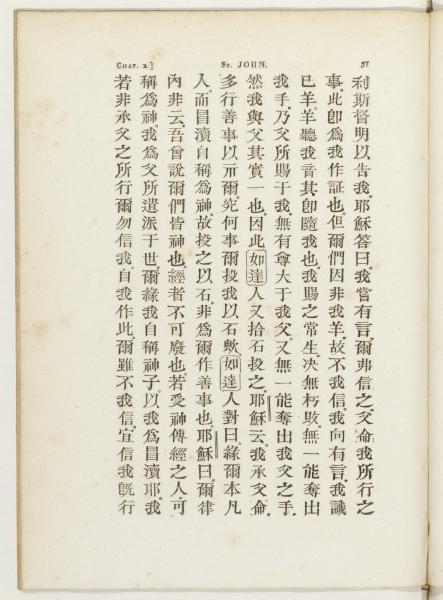 CHAP. X.] ST. JOHN. 37
利斯督明以告我。耶穌答曰我嘗有言。爾弗信之。父命我所行之
事。此卽爲我作証也。但爾們因非我羊。故不我信。我向有言。我識
已羊。羊聽我言。其卽隨我也。我賜之常生。决無朽敗。無一能奪出
我手。乃父所賜于我。無有尊大于我父。又無一能奪出我父之手。
然我與父其實一也。因此如達人又拾石投之。耶穌云。我承父命。
多行善事以示爾。究何事爾投我以石歟。如達人對曰。緣爾本凡
人。而冒瀆自稱爲神。故投之以石。非爲爾作善事也。耶穌曰。爾律
內非云。吾曾說爾們皆神也。經者不可廢也。若受神傳經之人。可
稱爲神。我爲父所遣派于世。爾緣我自稱神子。以我爲冒瀆耶。我
若非承父之所行。爾勿信我。自我作此。爾雖不我信。宜信我旣行